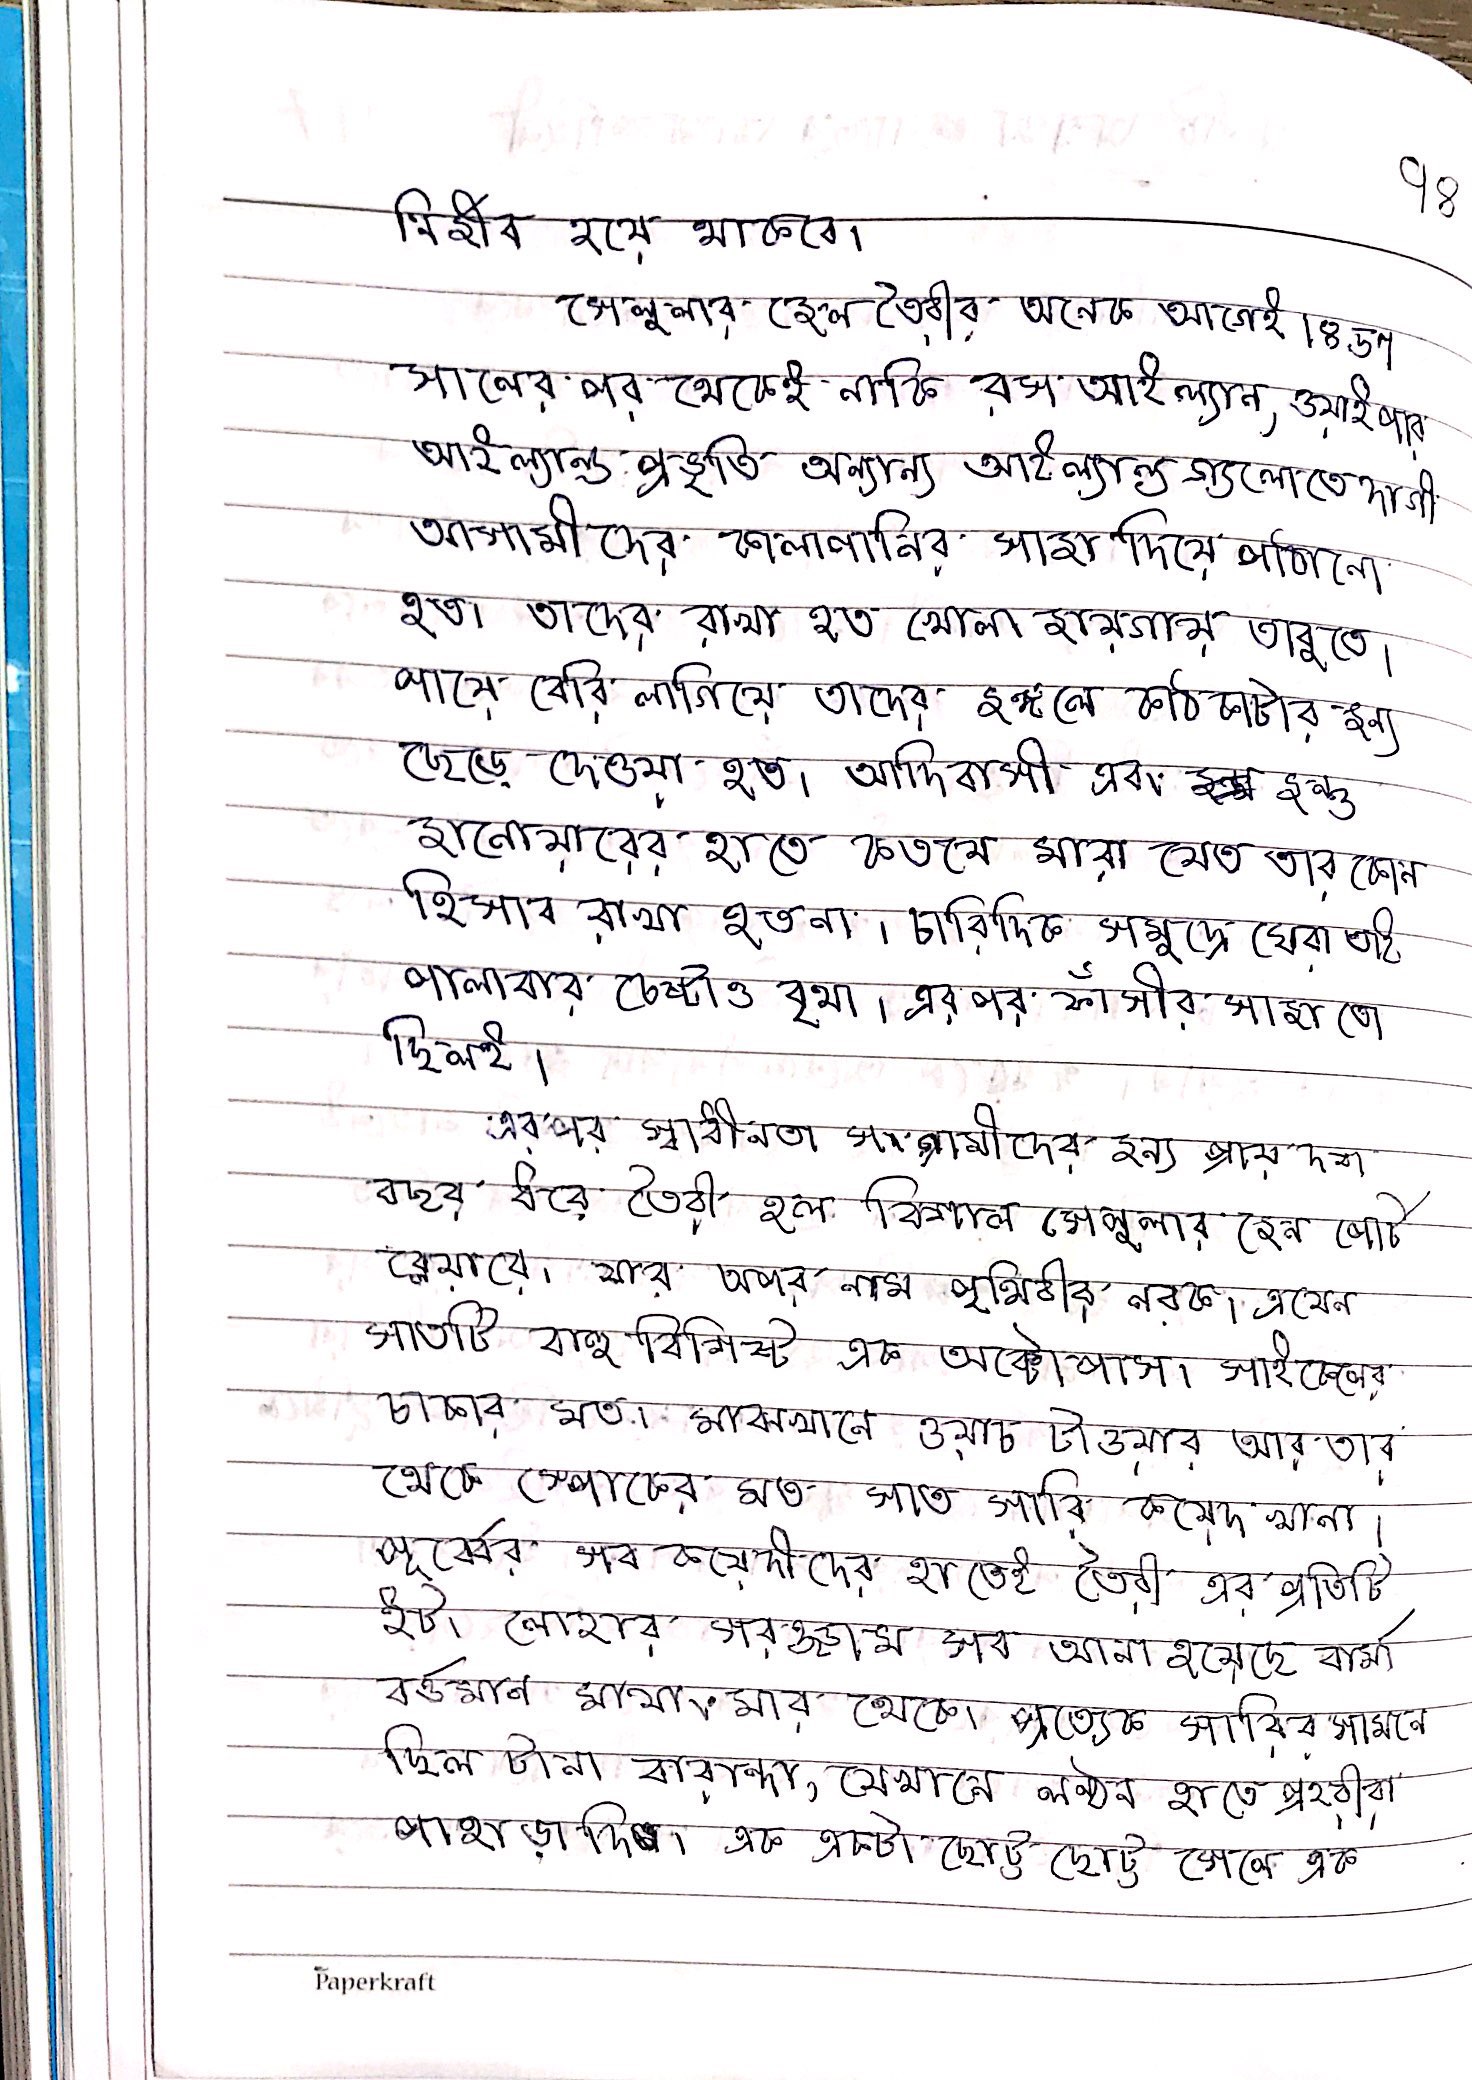 ৭৪
নির্জীব হয়ে থাকবে।
সেলুলার জেল তৈরীর অনেক আগেই ১৮৫৭
সালের পর থেকেই নাকি রস আইল্যান, ওয়াইপার
আইল্যান্ড প্রভৃতি অন্যান্য আইল্যান্ড গুলোতে দাগী
আসামীদের কালাপানির সাজা দিয়ে পাঠানো
হত। তাদের রাখা হত খোলা জায়গায় তাবুতে।
পায়ে বেরি লাগিয়ে তাদের জঙ্গলে কাঠ কাটার জন্য
ছেড়ে দেওয়া হত। আদিবাসী এবং জন্তু
জানোয়ারের হাতে কতযে মারা যেত তার কোন
হিসাব রাখা হতনা। চারিদিক সমুদ্রে ঘেরা তাই
পালাবার চেষ্টাও বৃথা। এরপর ফাঁসীর সাজা তো
ছিলই।
এরপর স্বাধীনতা সংগ্রামীদের জন্য প্রায় দশ
বছর ধরে তৈরী হল বিশাল সেলুলার জেল পোর্ট
ব্লেয়ারে। যার অপর নাম পৃথিবীর নরক। এযেন
সাতটি বাহু বিশিষ্ট এক অক্টোপাস। সাইকেলের
চাকার মত। মাঝখানে ওয়াচ টাওয়ার আর তার
থেকে স্পোকের মত সাত সারি কয়েদ খানা।
পূর্বের সব কয়েদীদের হাতেই তৈরী এর প্রতিটি
ইট। লোহার সরঞ্জাম সব আনা হয়েছে বার্মা
বর্ত্তমান মায়াংমার থেকে। প্রত্যেক সারির সামনে
ছিল টানা বারান্দা, যেখানে লন্ঠন হাতে প্রহরীরা
পাহাড়া দিত। এক একটা ছোট্ট ছোট্ট সেলে এক
Paperkraft